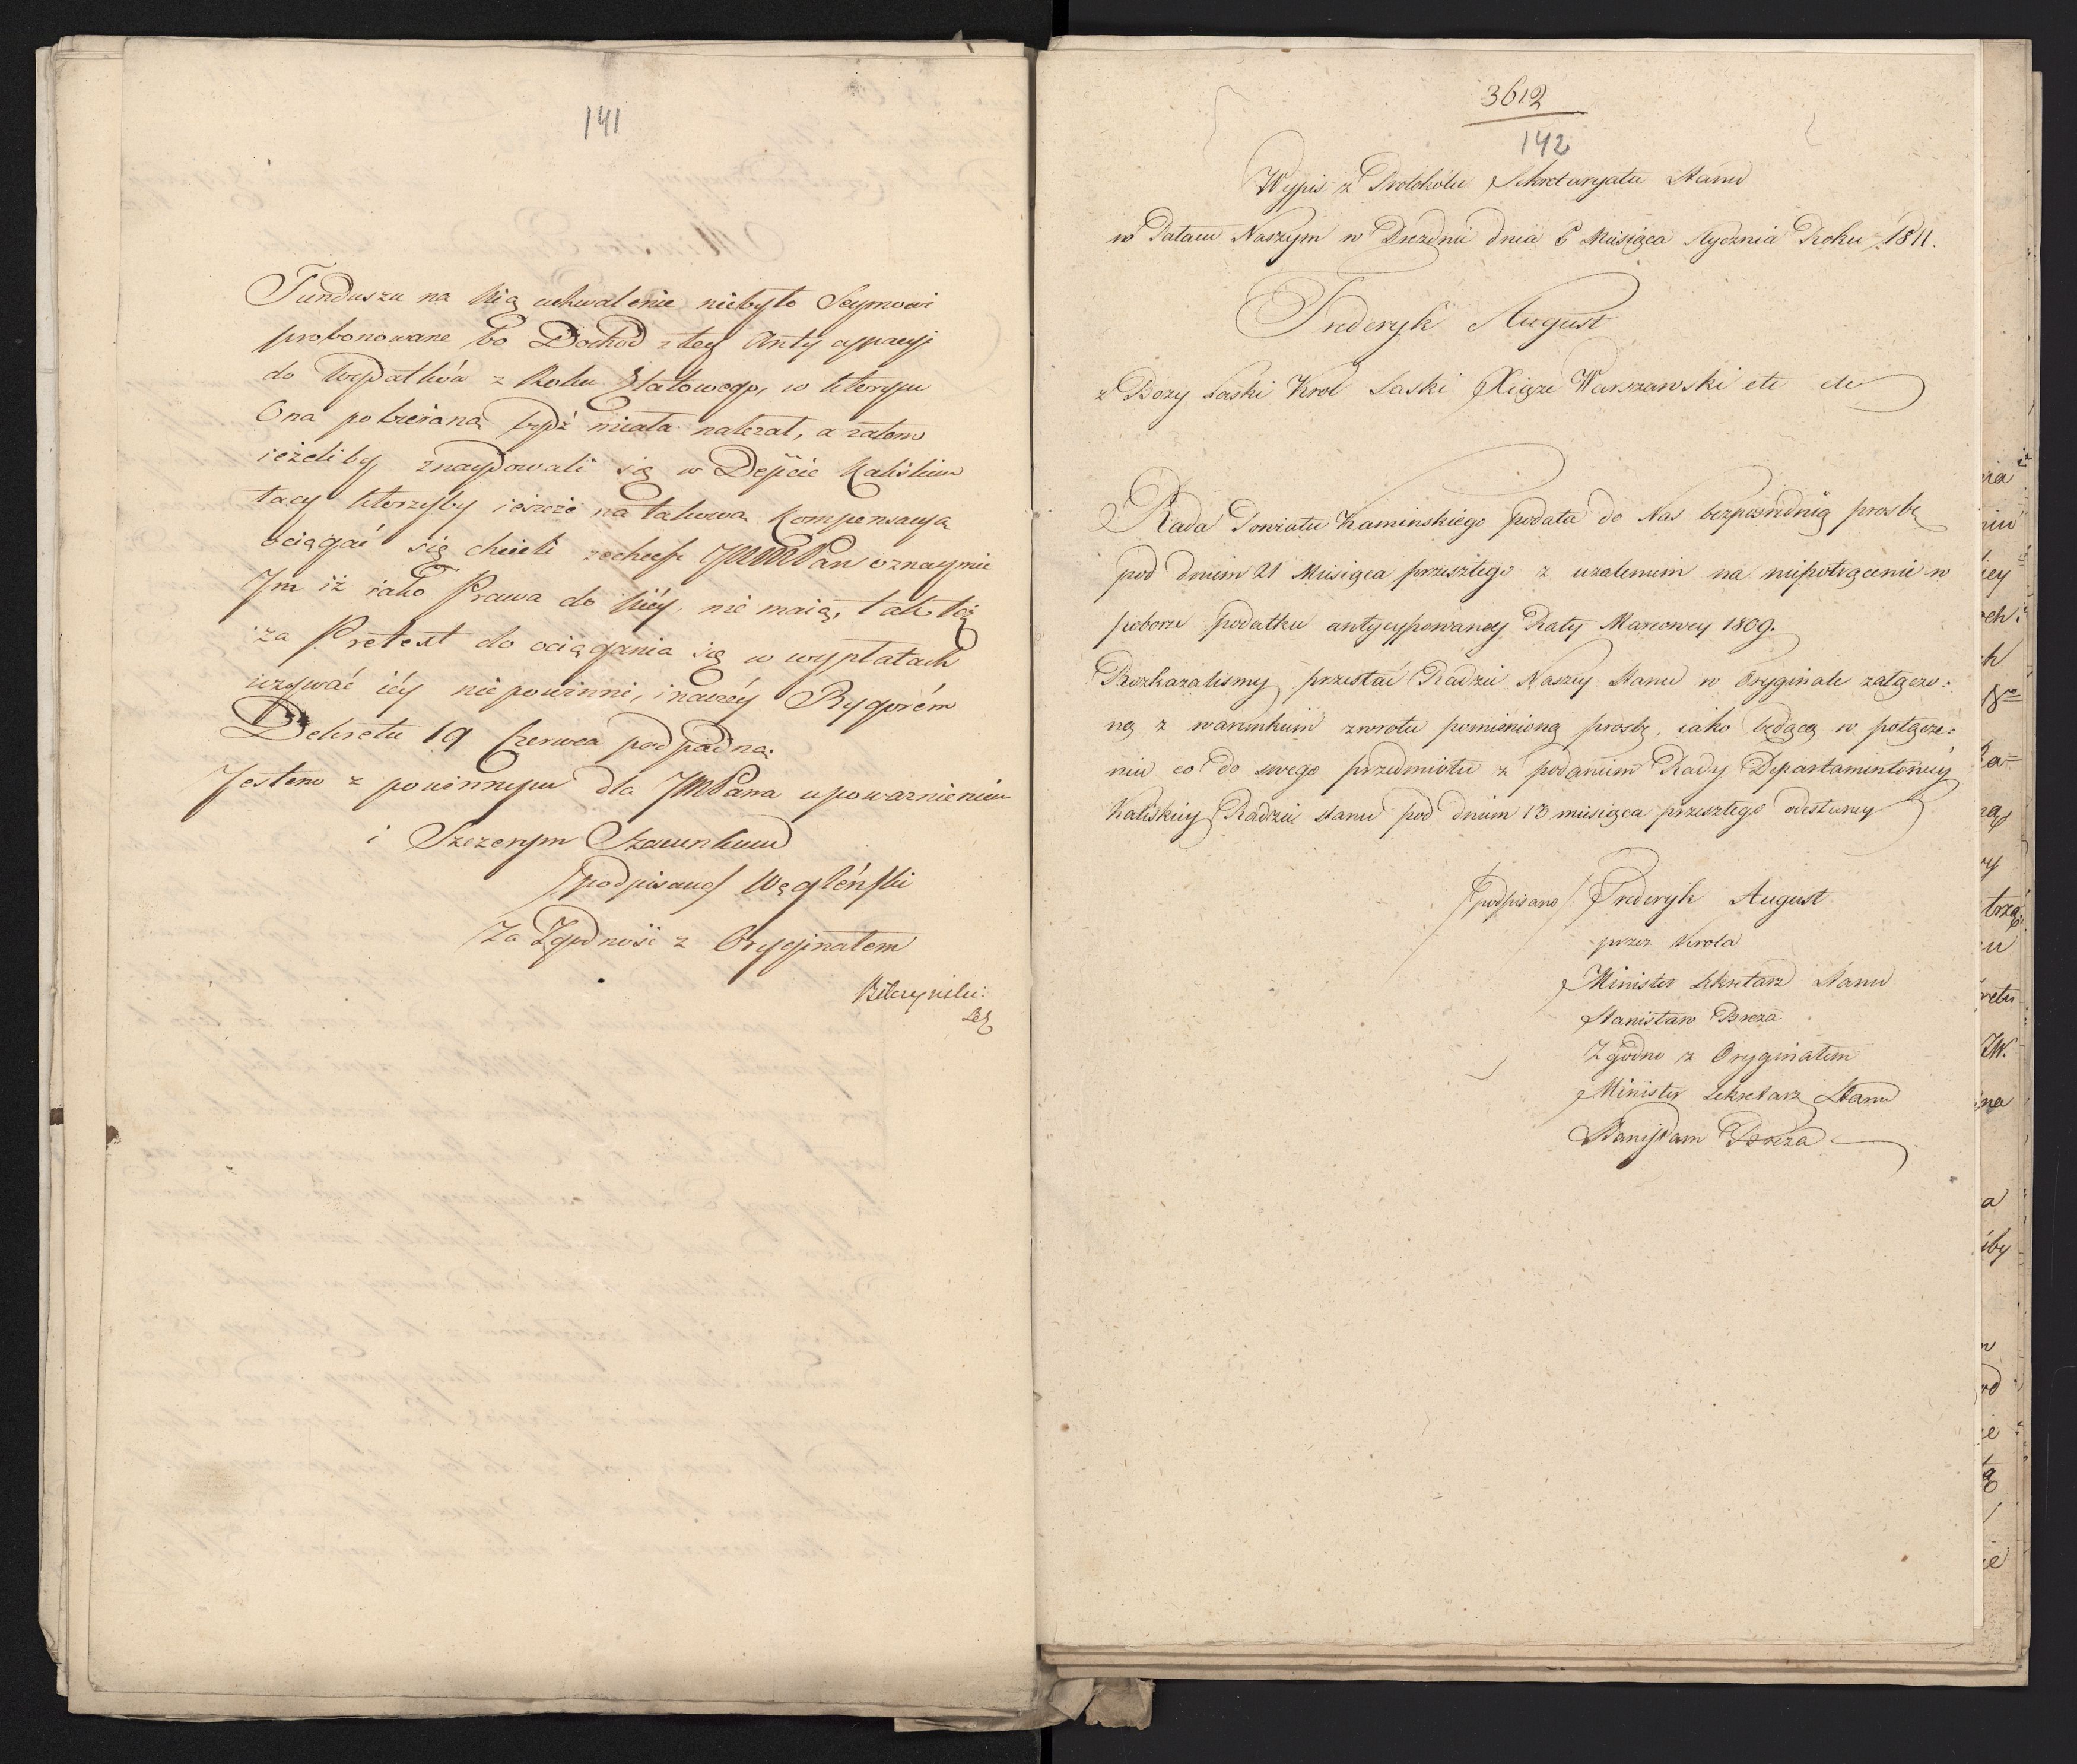 141
Funduszu na Nią uchwalenie niebyło Seymowi
probonowane bo Dochod z tey Antycypacyi
do Wydatków z Roku Etatowego, w ktorym
Ona pobieraną bydź miała należał, a zatem
ieżeliby znaydowali się w Depcie Kaliskim
tacy ktorzyby ieszcze na takową Kompensacyą
ociągać się chcieli zechcesz JWMPan oznaymić
Im iż iako Prawa do Niéy nie maią, tak też
za Pretext do ociągania się w wypłatach
używać iéy nie powinni, inaczéy Rygorém
Dekretu 19 Czerwca pod padną.
Jestem z powinnym dla JWPana upoważnieniem
i Szczerym Szacunkiem
/podpisano/ Węgleński
Za Zgodność z Oryginałem
Bilczyński
3612
142
Wypis z Protokółu Sekretaryatu Stanu
w Pałacu Naszym w Dreźnie dnia 6 Miesiąca Stycznia Roku 1811.
Fryderyk August
z Bozy Łaski Krol Saski Xiąze Warszawski etc etc
Rada Powiatu Kaminskiego podała do Nas bezpośrednią prosbę
pod dniem 21 Miesiąca przeszłego z uzaleniem na niepotrącenie w
poborze podatku antycypowaney Raty Marcowey 1809.
Rozkazalismy przesłać Radzie Naszey Stanu w Oryginale załączo:
ną z warunkiem zwrotu pomienioną prosbę, iako będącą w połącze:
niu co do swego przedmiotu z podaniem Rady Departamentowey
Kaliskiey Radzie Stanu pod dniem 13 miesiąca przeszłego odesłaney
/podpisano/ Fryderyk August
przez Krola
Minister Sekretarz Stanu
Stanisław Breza
Zgodno z Oryginałem
Minister Sekretarz Stanu
Stanisław Breza